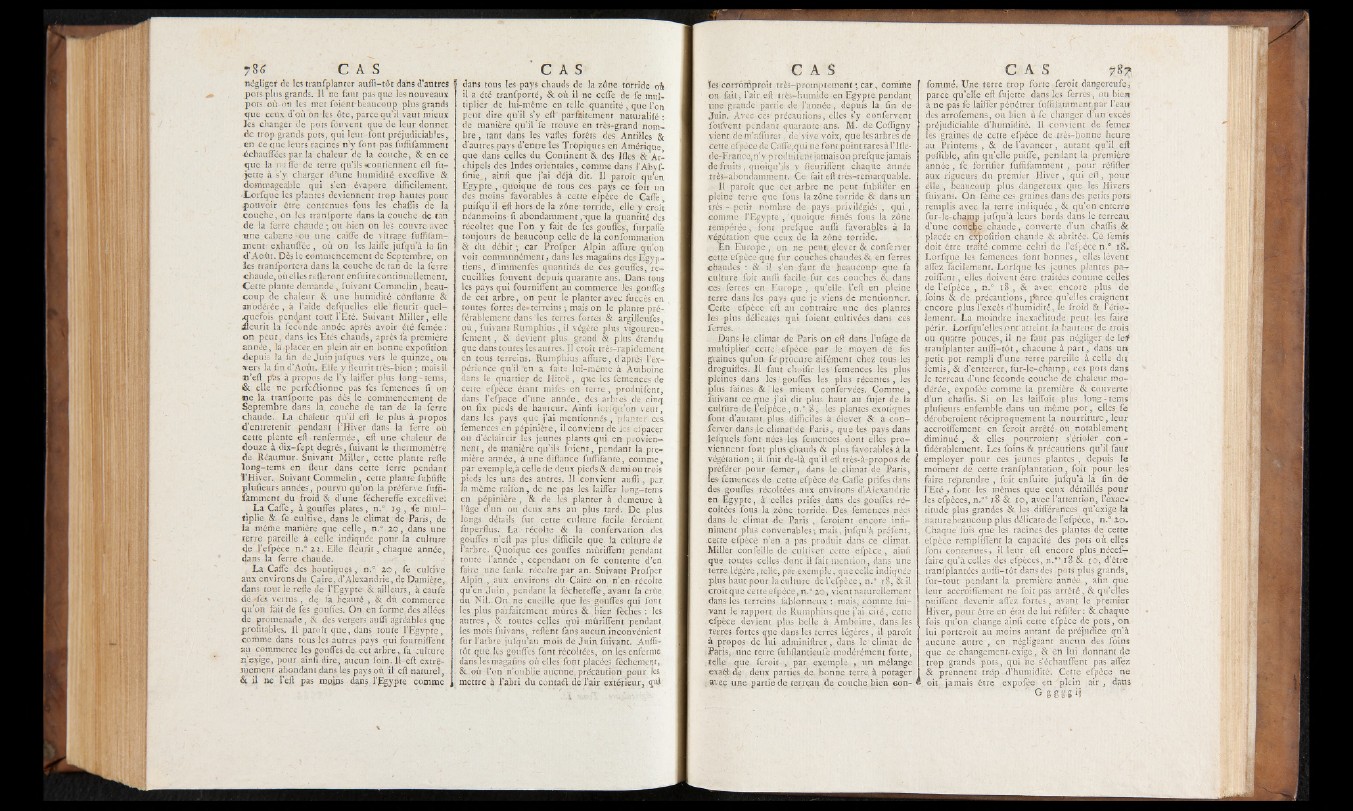 786 CAS
négliger de les transplanter aussi-tôt dans d'autres
pots plus grands. Il ne faut pas que les nouveaux
pots où on les met soient beaucoup plus grands
que ceux d'où on les ôte, parce qu'il vaut mieux
les changer de pots souvent que de leur donner
de trop grands pots, qui leur sont préjudiciables,
en ce que leurs racines n'y sont pas suffisamment
échauffées par la chaleur de la couche, & en ce
que la masse de terre qu'ils contiennent est su-
jette à s'y charger d'une humidité excessive &
dommageable qui s'en évapore difficilement.
Lorsque les plantes deviennent trop hautes pour
pouvoir être contenues sous les chassis de la
couche, on les transporte dans la couche de tan
de la serre chaude; ou bien on les couvre avec
une cabane ou une caisse de vitrage suffisam-
ment exhaussée, où on les laisse jusqu'à la fin
d'Août. Dès le commencement de Septembre, on
les transportera dans la couche de tan de la serre
chaude, où elles resteront ensuite continuellement.
Cette plante demande, suivant Commelin, beau-
coup de chaleur & une humidité constante &
modérée, à l'aide desquelles elle fleurit quel-
quefois pendant tout l'Eté. Suivant Miller, elle
fleurit la seconde année après avoir été semée:
on peut, dans les Etés chauds, après sa première
année, la placer en plein air en bonne exposition
depuis la fin de Juin jusques vers le quinze, ou
vers la fin d'Août. Elle y fleurit très-bien; mais il
n'est pas à propos de l'y laisser plus long-tems,
& elle ne perfectionne pas ses semences si on
ne la transporte pas dès le commencement de
Septembre dans la couche de tan de la serre
chaude. La chaleur qu'il est le plus à propos
d'entretenir pendant l'Hiver dans la serre où
cette plante est renfermée, est une chaleur de
douze à dix-sept degrés, suivant le thermomètre
de Réaumur. Suivant Miller, cette plante reste
long-tems en fleur dans cette serre pendant
l'Hiver. Suivant Commelin, cette plante subsiste
plusieurs années, pourvu qu'on la préserve suffi-
samment du froid & d'une sécheresse excessive.
La Casse, à gousses plates, n.° 19, se mul-
tiplie & se cultive, dans le climat de Paris, de
la même manière que celle, n.° 20, dans une
terre pareille à celle indiquée pour la culture
de l'espèce n.° 22. Elle fleurit, chaque année,
dans la serre chaude.
La Casse des boutiques, n.° 20, se cultive
aux environs du Caire, d'Alexandrie, de Damiète,
dans tout le reste de l'Egypte & ailleurs, à cause
de ses vertus, de sa beauté, & du commerce
qu'on fait de ses gousses. On en forme des allées
de promenade, & des vergers aussi agréables que
profitables. Il paroît que, dans toute l'Egypte,
comme dans tous les autres pays qui fournissent
au commerce les gousses de cet arbre, sa culture
n'exige, pour ainsi dire, aucun soin. Il est extrê-
mement abondant dans les pays où il est naturel,
& il ne l'est pas moins dans l'Egypte comme
CAS
dans tous les pays chauds de la zône torride où
il a été transporté, & où il ne cesse de se mul-
tiplier de lui-même en telle quantité, que l'on
peut dire qu'il s'y est parfaitement naturalisé:
de manière qu'il se trouve en très-grand nom-
bre, tant dans les vastes forêts des Antilles &
d'autres pays d'entre les Tropiques en Amérique,
que dans celles du Continent & des Isles & Ar-
chipels des Indes orientales, comme dans l'Abys-
sinie, ainsi que j'ai déjà dit. Il paroît qu'en
Egypte, quoique de tous ces pays ce soit un
des moins favorables à cette espèce de Casse,
puisqu'il est hors de la zône torride, elle y croît
néanmoins si abondamment, que la quantité des
récoltes que l'on y fait de ses gousses, surpasse
toujours de beaucoup celle de la consommation
& du débit; car Prosper Alpin assure qu'on
voit communément, dans les magasins des Egyp-
tiens, d'immenses quantités de ces gousses, re-
cueillies souvent depuis quarante ans. Dans tous
les pays qui fournissent au commerce les gousses
de cet arbre, on peut le planter avec succès en
toutes sortes de terreins; mais on le plante pré-
férablement dans les terres fortes & argilleuses,
où, suivant Rumphius, il végète plus vigoureu-
sement, & devient plus grand & plus étendu
que dans toutes les autres. Il croît très-rapidement
en tous terreins. Rumphius assure, d'après l'ex-
périence qu'il en a faite lui-même à Amboine
dans le quartier de Hitoë, que les semences de
cette espèce étant mises en terre, produisent,
dans l'espace d'une année, des arbres de cinq
ou six pieds de hauteur. Ainsi lorsqu'on veut,
dans les pays que j'ai mentionnés, planter ces
semences en pépinière, il convient de les espacer
ou d'éclaircir les jeunes plants qui en provien-
nent, de manière qu'ils soient, pendant la pre-
mière année, à une distance suffisante, comme,
par exemple, à celle de deux pieds & demi ou trois
pieds les uns des autres. Il convient aussi, par
la même raison, de ne pas les laisser long-tems
en pépinière, & de les planter à demeure à
l'âge d'un ou deux ans au plus tard. De plus
longs détails sur cette culture facile seroient
superflus. La récolte & la conservation des
gousses n'est pas plus difficile que la culture de
l'arbre. Quoique ces gousses mûrissent pendant
toute l'année, cependant on se contente d'en
faire une seule récolte par an. Suivant Prosper
Alpin, aux environs du Caire on n'en récolte
qu'en Juin, pendant la sécheresse, avant la crûe
du Nil. On ne cueille que les gousses qui sont
les plus parfaitement mûres & bien sèches: les
autres, & toutes celles qui mûrissent pendant
les mois suivans, restent sans aucun inconvénient
sur l'arbre jusqu'au mois de Juin suivant. Aussi-
tôt que les gousses sont récoltées, on les enferme
dans les magasins où elles sont placées sèchement,
& où l'on n'oublie aucune précaution pour les
mettre à l'abri du contact de l'air extérieur, qui
CAS
les corromproit très-promptement; car, comme
on sait, l'air est très-humide en Egypte pendant
une grande partie de l'année, depuis la fin de
Juin. Avec ces précautions, elles s'y conservent
souvent pendant quarante ans. M. de Cossigny
vient de m'assurer, de vive voix, que les arbres de
cette espèce de Casse, qui ne sont point rares à l'Isle-
de-France, n'y produisent jamais ou presque jamais
de fruits, quoiqu'ils y fleurissent chaque année
très-abondamment. Ce fait est très-remarquable.
Il paroît que cet arbre ne peut subsister en
pleine terre que sous la zône torride & dans un
très-petit nombre de pays privilégiés, qui,
comme l'Egypte, quoique situés sous la zône
tempérée, sont presque aussi favorables à la
végétation que ceux de la zône torride.
En Europe, on ne peut élever & conserver
cette espèce que sur couches chaudes & en serres
chaudes: & il s'en faut de beaucoup que sa
culture soit aussi facile sur ces couches & dans
ces serres en Europe, qu'elle l'est en pleine
terre dans les pays que je viens de mentionner.
Cette espèce est au contraire une des plantes
les plus délicates qui soient cultivées dans ces
serres.
Dans le climat de Paris on est dans l'usage de
multiplier cette espèce par le moyen de ses
graines qu'on se procure aisément chez tous les
droguistes. Il faut choisir les semences les plus
pleines dans les gousses les plus récentes, les
plus saines & les mieux conservées. Comme,
suivant ce que j'ai dit plus haut au sujet de la
culture de l'espèce, n.° 8, les plantes exotiques
sont d'autant plus difficiles à élever & à con-
server dans le climat de Paris, que les pays dans
lesquels sont nées les semences dont elles pro-
viennent sont plus chauds & plus favorables à la
végétation; il suit de-là qu'il est très-à-propos de
préférer pour semer, dans le climat de Paris,
les semences de cette espèce de Casse prises dans
des gousses récoltées aux environs d'Alexandrie
en Egypte, à celles prises dans des gousses ré-
coltées sous la zône torride. Des semences nées
dans le climat de Paris, seroient encore infi-
niment plus convenables; mais, jusqu'à présent,
cette espèce n'en a pas produit dans ce climat.
Miller conseille de cultiver cette espèce, ainsi
que toutes celles dont il fait mention, dans une
terre légère, telle, par exemple, que celle indiquée
plus haut pour la culture de l'espèce, n.° 18, & il
croit que cette espèce, n.° 20, vient naturellement
dans les terreins sablonneux: mais, comme sui-
vant le rapport de Rumphius que j'ai cité, cette
espèce devient plus belle à Amboine, dans les
terres fortes que dans les terres légères, il paroît
à propos de lui administrer, dans le climat de
Paris, une terre substantieuse modérément forte,
telle que seroit, par exemple, un mélange
exact de deux parties de bonne terre à potager
avec une partie de terreau de couche bien con-
CAS 787
sommé. Une terre trop forte seroit dangereuse,
parce qu'elle est sujette dans les serres, ou bien
à ne pas se laisser pénétrer suffisamment par l'eau
des arrosemens, ou bien à se charger d'un excès
préjudiciable d'humidité. Il convient de semer
les graines de cette espèce de très-bonne heure
au Printems, & de l'avancer, autant qu'il est
possible, afin qu'elle puisse, pendant la première
année, se fortifier suffisamment, pour résister
aux rigueurs du premier Hiver, qui est, pour
elle, beaucoup plus dangereux que les Hivers
suivans. On sème ces graines dans des petits pots
remplis avec la terre indiquée, & qu'on enterre
sur-le-champ jusqu'à leurs bords dans le terreau
d'une couche chaude, couverte d'un chassis &
placée en exposition chaude & abritée. Ce semis
doit être traité comme celui de l'espèce n.° 18.
Lorsque les semences sont bonnes, elles lèvent
assez facilement. Lorsque les jeunes plantes pa-
roissent, elles doivent être traitées comme celles
de l'espèce, n.° 18, & avec encore plus de
soins & de précautions, parce qu'elles craignent
encore plus l'excès d'humidité, le froid & l'étio-
lement. La moindre inexactitude peut les faire
périr. Lorsqu'elles ont atteint la hauteur de trois
ou quatre pouces, il ne faut pas négliger de les
transplanter aussi-tôt, chacune à part, dans un
petit pot rempli d'une terre pareille à celle du
semis, & d'enterrer, sur-le-champ, ces pots dans
le terreau d'une seconde couche de chaleur mo-
dérée, exposée comme la première & couverte
d'un chassis. Si on les laissoit plus long-tems
plusieurs ensemble dans un même pot, elles se
déroberoient réciproquement la nourriture, leur
accroissement en seroit arrêté ou notablement
diminué, & elles pourroient s'étioler con-
sidérablement. Les soins & précautions qu'il faut
employer pour ces jeunes plantes, depuis le
moment de cette transplantation, soit pour les
faire reprendre, soit ensuite jusqu'à la fin de
l'Eté, sont les mêmes que ceux détaillés pour
les espèces, n.os 18 & 10, avec l'attention, l'exac-
titude plus grandes & les différences qu'exige la
nature beaucoup plus délicate de l'espèce, n.° 20.
Chaque fois que les racines des plantes de cette
espèce remplissent la capacité des pots où elles
sont contenues, il leur est encore plus néces-
saire qu'à celles des espèces, n.os 18 & 10, d'être
transplantées aussi-tôt dans des pots plus grands,
sur-tout pendant la première année, afin que
leur accroissement ne soit pas arrêté, & qu'elles
puissent devenir assez fortes, avant le premier
Hiver, pour être en état de lui résister: & chaque
fois qu'on change ainsi cette espèce de pots, on
lui porteroit au moins autant de préjudice qu'à
aucune autre, en négligeant aucun des soins
que ce changement exige, & en lui donnant de
trop grands pots, qui ne s'échauffent pas assez
& prennent trop d'humidité. Cette espèce ne
doit jamais être exposée en plein air, dans
G g g g g ij